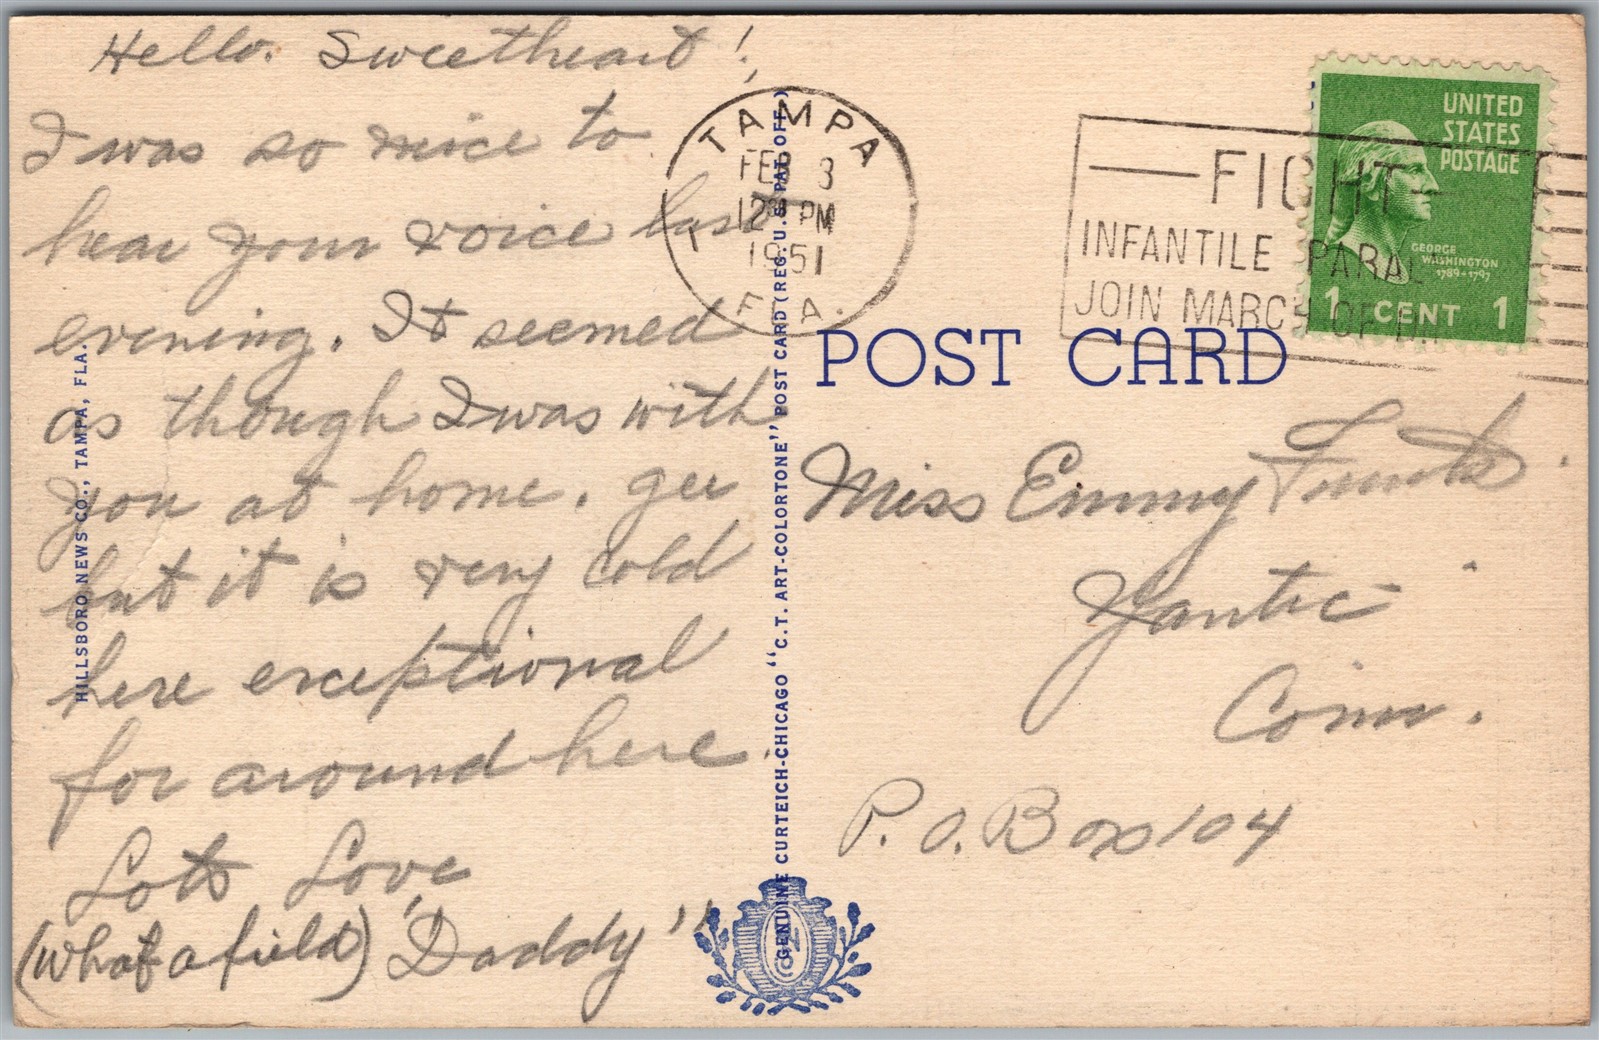 Hello. Sweetheart!
I was so nice to
hear your voice last
evening. It seemed
as though I was with
you at home. gee
but it is very cold
here exceptional
for around here.
Lots Love,
(what a field) "Daddy"
HILLSBORO NEWS CO., TAMPA, FLA.
GENUINE CURTEICH-CHICAGO "C.T. ART-COLORTONE" POST CARD (REG. U.S. PAT. OFF.)
TAMPA
FEB 3
12 PM
1951
FLA.
FIGHT
INFANTILE PARAL
JOIN MARCH OF
UNITED
STATES
POSTAGE
GEORGE
WASHINGTON
1789-1797
1 CENT 1
POST CARD
Miss Emmy
Yantic
Conn.
P.O. Box 104